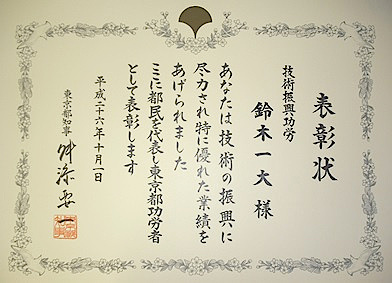 表彰状
技術振興功労
鈴木一大様
あなたは技術の振興に
尽力され特に優れた業績を
あげられました
ここに都民を代表し東京都功労者
として表彰します
平成二十六年十月一日
東京都知事 舛添要一